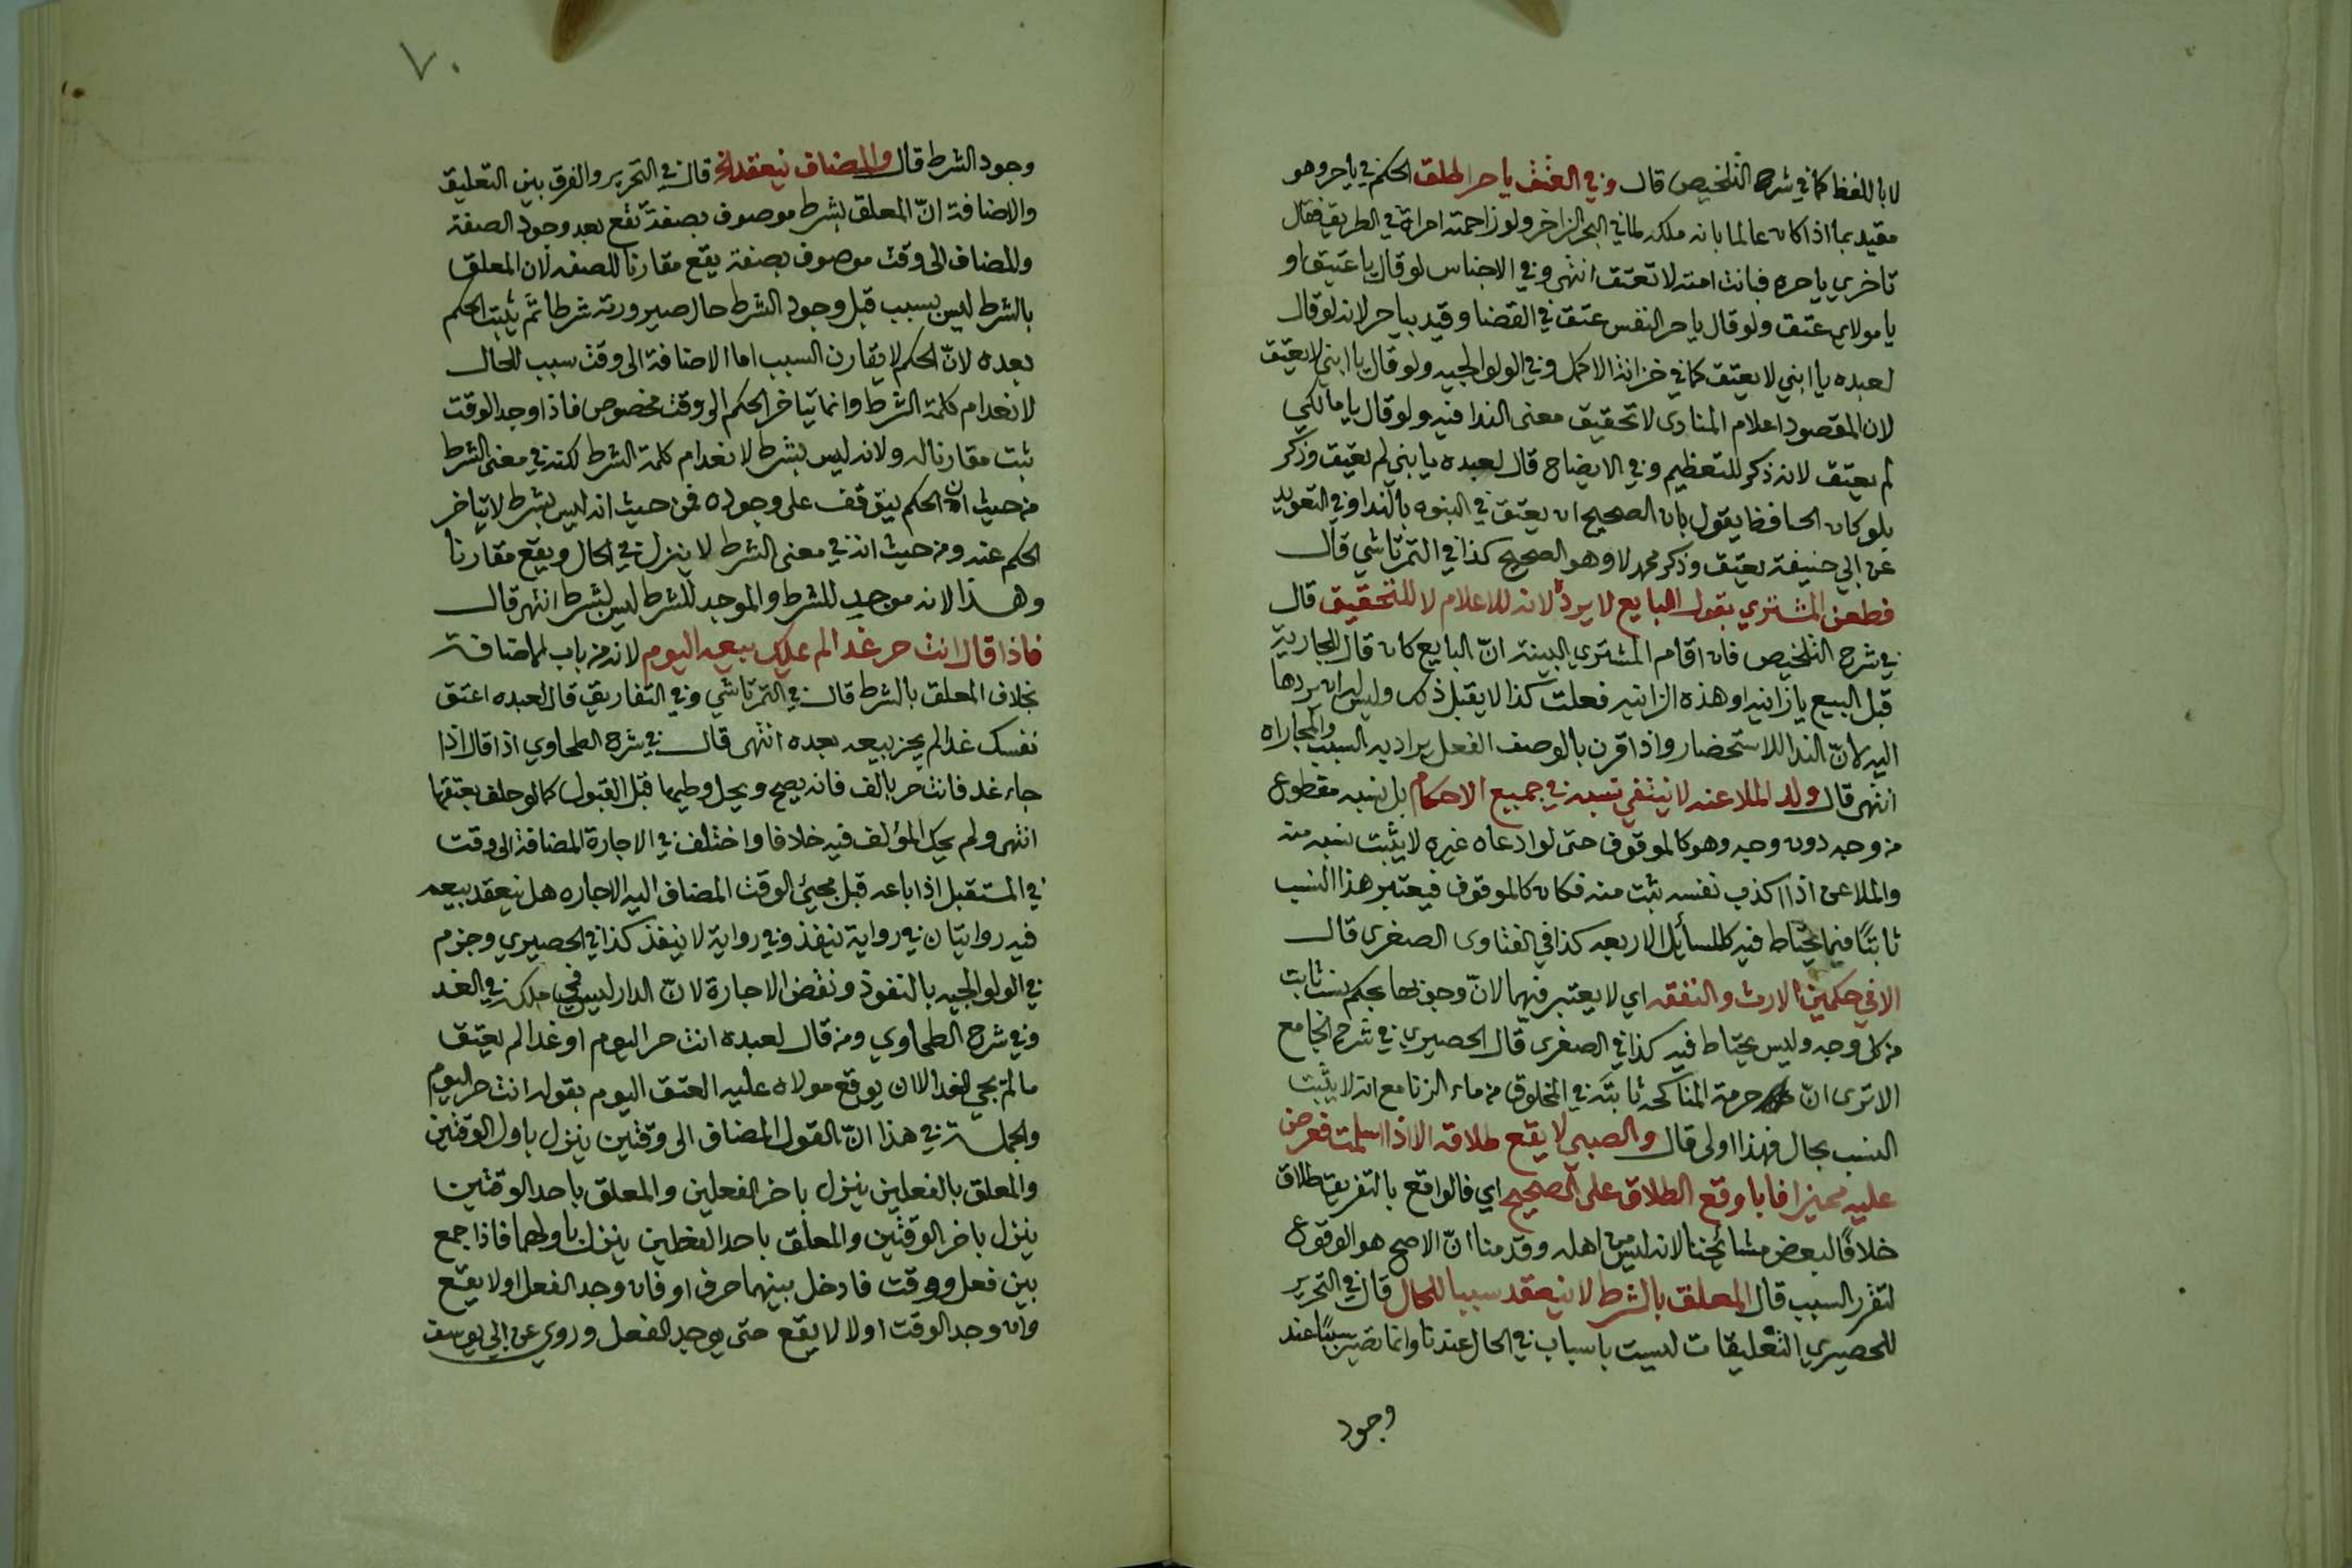 لا باللفظ كما في شرح التلخيص قال وفي العتق ياحر اطلق الحكم في ياحر وهو
مقيد بما اذا كان عالما بانه ملكه لما في البحر الزاخر ولو زاحمته امراة في الطريق فقال
تاخري ياحره فبانت امته لا تعتق انتهى وفي الاجناس لو قال يا عتيق او
يا مولاي عتق ولو قال ياحر النفس عتق في القضا وقيد بياحر لانه لو قال
لعبده يا ابني لا يعتق كما في خزانة الاكمل وفي الولوالجيه ولو قال يا ابني لا يعتق
لان المقصود اعلام المنادى لا تحقيق معنى الندا فيه ولو قال يا مالكي
لم يعتق لانه ذكر للتعظيم وفي الايضاح قال لعبده يا بني لم يعتق وذكر
بلو كان الحسا فظا يقول بان الصحيح ان يعتق في البنوه بالندا وفي التعويد
عن ابي حنيفة يعتق وذكر محمد لا وهو الصحيح كذا في التمرتاشي قال
فطعن المشتري بقول البايع لا يرد لانه للاعلام لا للتحقيق قال
في شرح التلخيص فان اقام المشتري البينة انّ البايع كان قال للجارية
قبل البيع يا زانيه او هذه الزانيه فعلت كذا لا يقبل ذلك وليس له ان يردها
اليه لانّ الندا للاستحضار واذا قرن بالوصف الفعل يراد به السبب والمجازاه
انتهى قال ولد الملاعنه لا ينتفي نسبه في جميع الاحكام بل نسبه مقطوع
من وجه دون وجه وهو كالموقوف حتى لو ادعاه غيره لا يثبت نسبه منه
والملاعن اذا اكذب نفسه ثبت منه فكان كالموقوف فيعتبر هذا النسب
ثابتًا فيما يحتاط فيه كالمسأيل الاربعه كذا في الفتاوى الصغرى قال
الا في حكمين الارث والنفقه اي لا يعتبر فيهما لانّ وجوبها بحكم نسب ثابت
من كل وجه وليس يحتاط فيه كذا في الصغرى قال الحصيري في شرح الجامع
الا ترى انّ حرمة المناكحه ثابتة في المخلوق من ماء الزنا مع انه لا يثبت
النسب بحال فهذا اولى قال والصبي لا يقع طلاقه الا اذا اسلمت فعرض
عليه مميزا فابا وقع الطلاق على الصحيح اي فالواقع بالتفريق طلاق
خلافًا لبعض مشائخنا لانه ليس من اهله وقدمنا انّ الاصح هو الوقوع
لتقرر السبب قال المعلق بالشرط لا ينعقد سببا للحال قال في التحرير
للحصيري التعليقات ليست باسباب في الحال عندنا وانما تصير سببًا عند
وجود
٧٠
وجود الشرط قال والمضاف ينعقد الخ قال في التحرير والفرق بين التعليق
والاضافة انّ المعلق بشرط موصوف بصفة تقع بعد وجود الصفة
والمضاف الى وقت موصوف بصفة يقع مقارنا للصفه لان المعلق
بالشرط ليس بسبب قبل وجود الشرط حال صيرورته شرطا ثم يثبت الحكم
بعده لانّ الحكم لا يقارن السبب اما الاضافة الى وقت سبب للحال
لانعدام كلمة الشرط وانما يتاخر الحكم الى وقت مخصوص فاذا وجد الوقت
ثبت مقارنا له ولانه ليس بشرط لانعدام كلمة الشرط لكنه في معنى الشرط
من حيث ان الحكم يتوقف على وجوده فمن حيث انه ليس بشرط لا يتاخر
الحكم عنه ومن حيث انه في معنى الشرط لا ينزل في الحال ويقع مقارنا
وهذا لانه موجد للشرط والموجد للشرط ليس بشرط انتهى قال
فاذا قال انت حر غدا لم يملك بيعه اليوم لانه من باب الاضافة
بخلاف المعلق بالشرط قال في التمرتاشي وفي التفاريق قال لعبده اعتق
نفسك غدا لم يجز بيعه بعده انتهى قال في شرح الطحاوي اذا قال اذا
جاء غد فانت حر بالف فانه يصح ويحل وطيها قبل القبول كما لو حلف بعتقها
انتهى ولم يحك المؤلف فيه خلافا واختلف في الاجارة المضافة الى وقت
في المستقبل اذا باعه قبل مجيئ الوقت المضاف اليه الاجاره هل ينعقد بيعه
فيه روايتان في رواية ينفذ وفي رواية لا ينفذ كذا في الحصيري وجزم
في الولوالجيه بالنفوذ ونقض الاجارة لانّ الدار ليس في ملكه في الغد
وفي شرح الطحاوي ومن قال لعبده انت حر اليوم او غدا لم يعتق
ما لم يجي الغد الا ان يوقع مولاه عليه العتق اليوم بقوله انت حر اليوم
والجملة في هذا انّ القول المضاف الى وقتين ينزل باول الوقتين
والمعلق بالفعلين ينزل باخر الفعلين والمعلق باحد الوقتين
ينزل باخر الوقتين والمعلق باحد الفعلين ينزل باولهما فاذا جمع
بين فعل ووقت فادخل بينهما حرف او فان وجد الفعل اولا يقع
وان وجد الوقت اولا لا يقع حتى يوجد الفعل وروي عن ابي يوسف